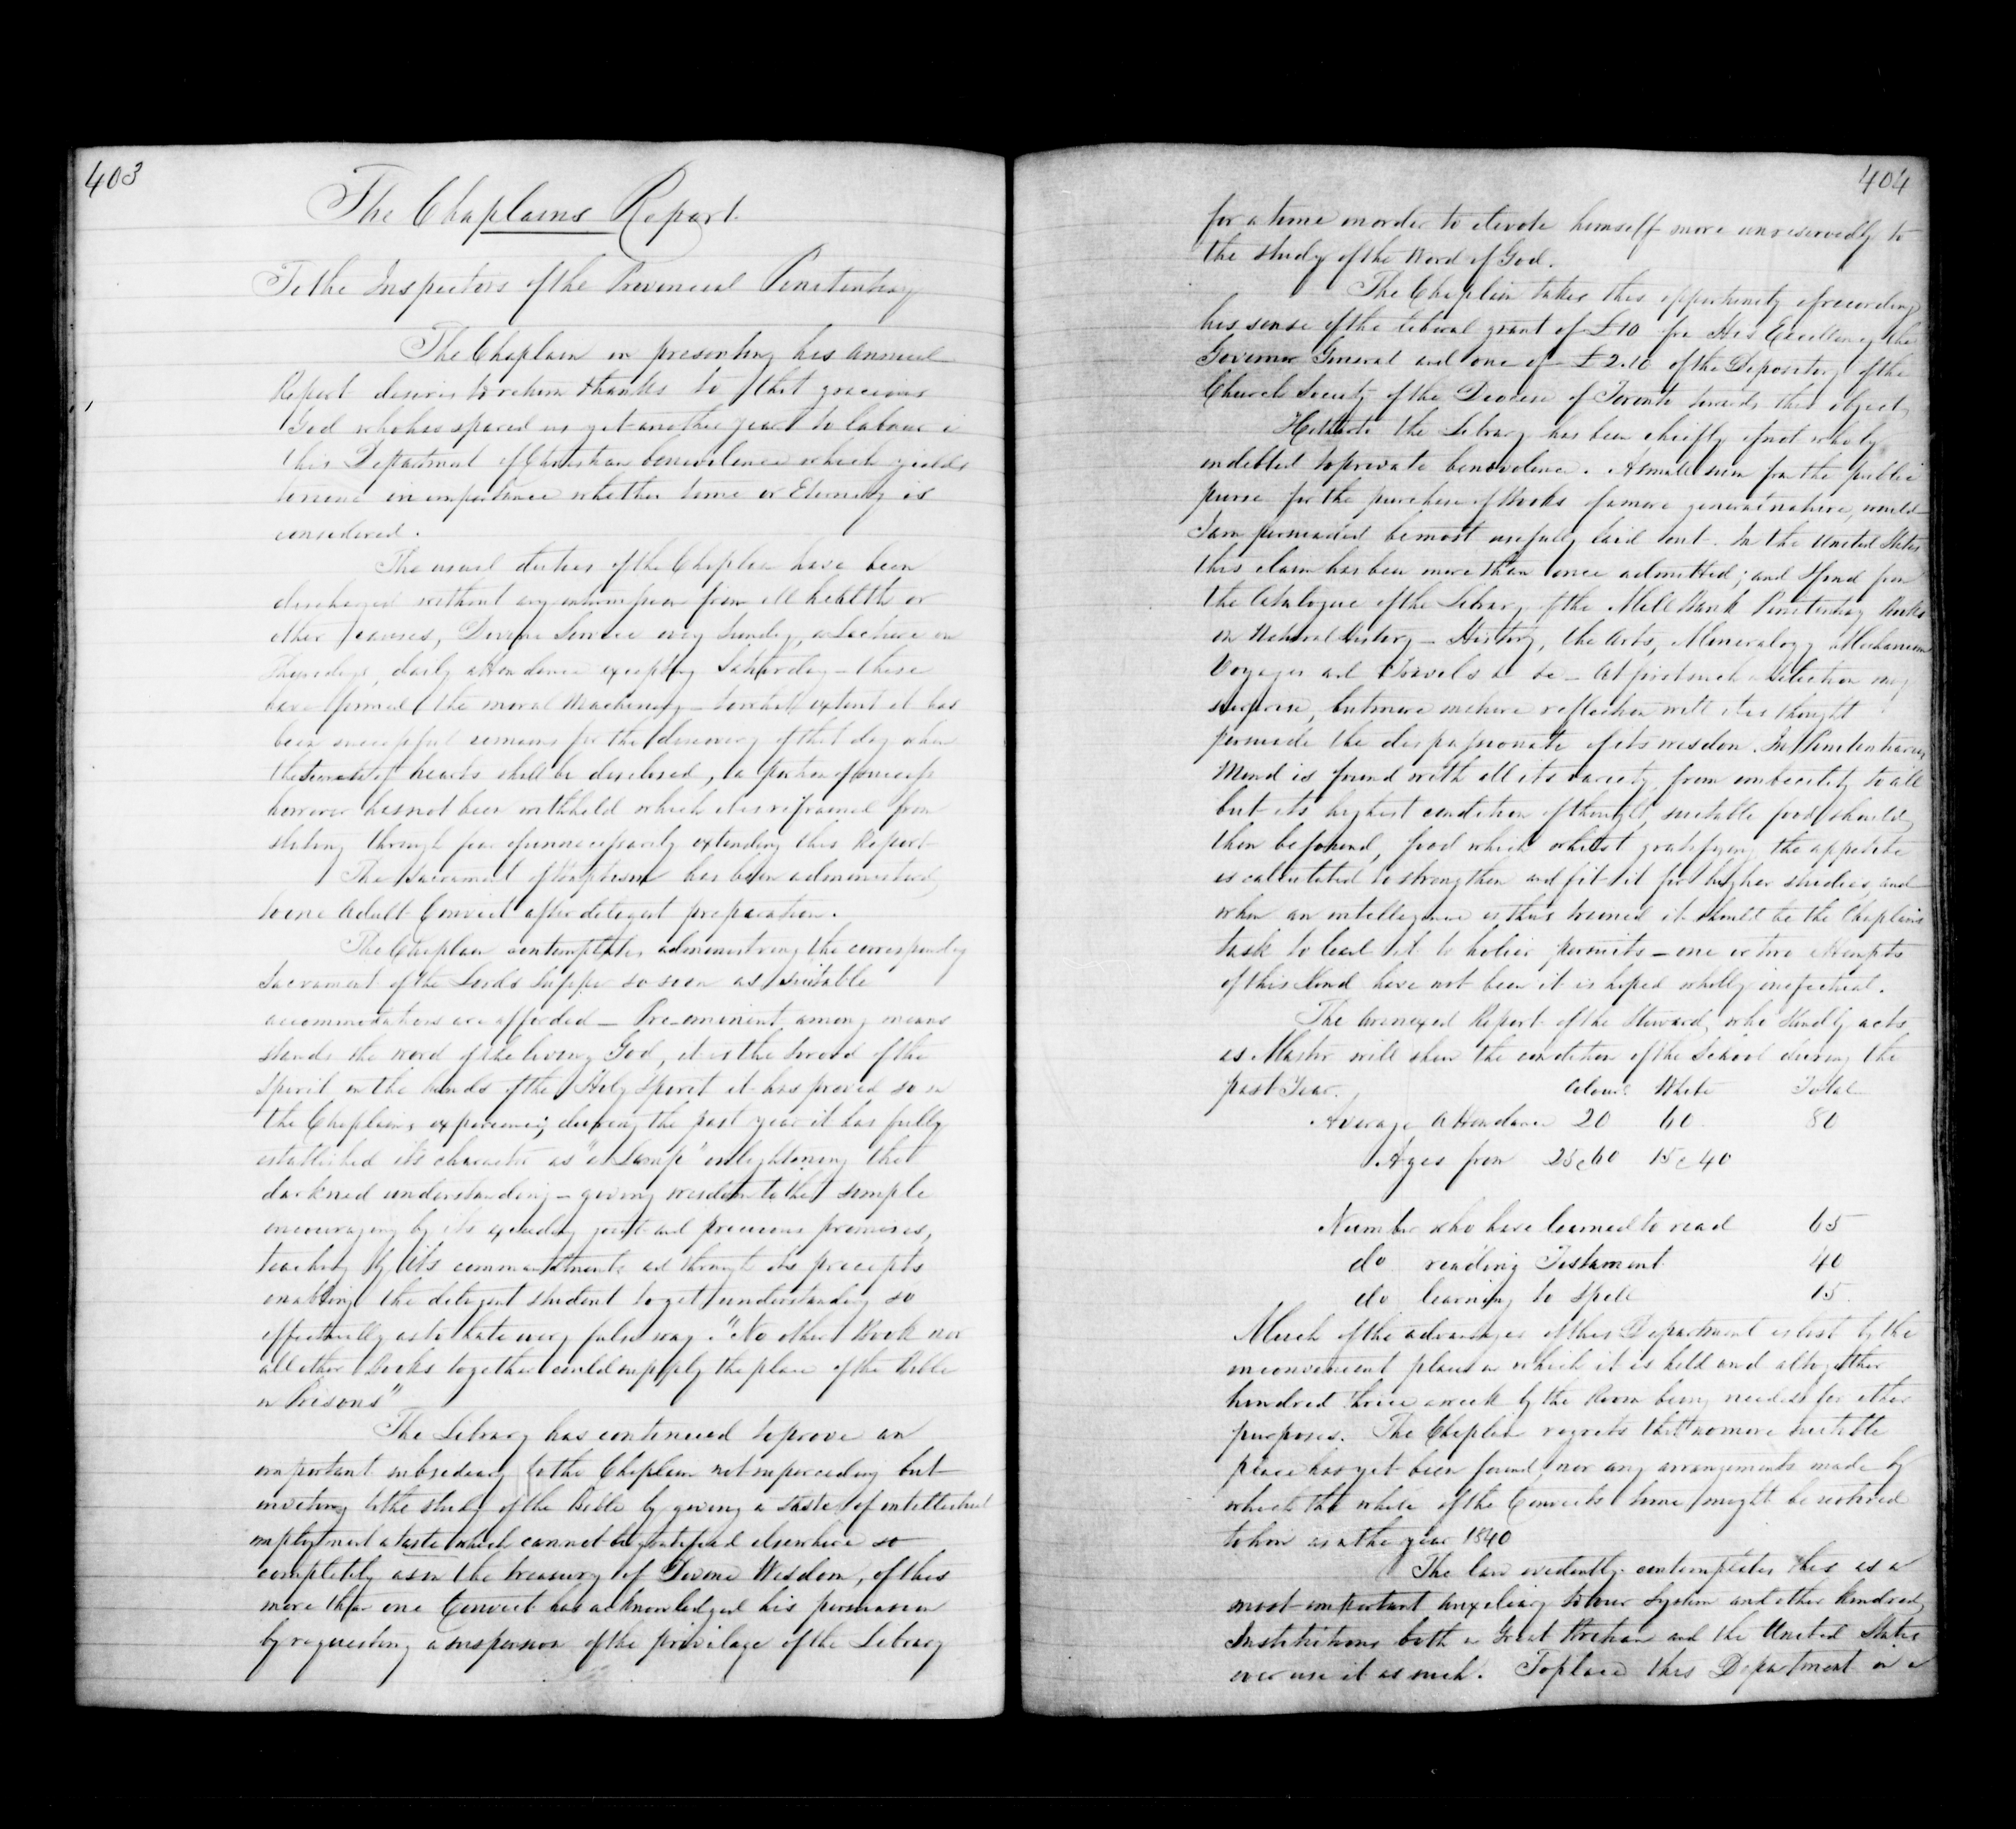 403
The Chaplains Report
To the Inspectors of the Provincial Penitentiary
The Chaplain in presenting his annual
Report desires to return thanks to that gracious
God who has spared us yet another year to labour i
this Department of Christian benevolence which yields
to none in importance whether time or Eternity is
considered.
The usual duties of the Chaplin have been
discharged without any interruption from ill health or
other causes, Divine Service every Sunday, a Lecture on
Thursdays, daily attendance excepting Saturday – these
have formed the moral Machinery – to what extent it has
been successful remains for the discovery of that day when
the secrets of hearts shall be disclosed, a portion of success
however has not been withheld which it is refrained from
stating through fear of unnecessarily extending this Report
The Sacrament of Baptism has been administered
to one Adult Convict after diligent preparation.
The Chaplain contemplates administering the corresponding
Sacrament of the Lords Supper so soon as suitable
accommodations are afforded – Pre-eminent among means
stands the word of the living God, it is the Sword of the
Spirit in the hands of the Holy Spirit it has proved so in
the Chaplains experience; during the past year it has fully
established its character as "a Lamp" enlightening the
darkned understanding – giving wisdom to the simple
encouraging by its exceeding great and precious promises,
teaching by its commandments and through its precepts
enabling the diligent student to get understanding so
effectually as to hate every false way. "No other Book nor
all other Books together could supply the place of the Bible
in Prisons"
The Library has continued to prove an
important subsidiary to the Chaplain not superceding but
inviting to the study of the Bible by giving a taste of intellectual
employment a taste which cannot be gratified elsewhere so
completely as in the treasury of Divine Wisdom, of this
more than one Convict has acknowledged his persuasion
by requesting a suspension of the privilage of the Library
404
for a time in order to devote himself more unreservedly to
the study of the Word of God.
The Chaplin takes this opportunity of recording
his sense of the liberal grant of £10 fr His Excellency the
Governor General and one of £2.10 of the Depository of the
Church Society of the Diocese of Toronto towards this object
Hitherto the Library has been chiefly if not wholy
indebted to private benevolence. A small sum from the public
purse for the purchase of Books of a more general nature, would
I am persuaded be most usefully laid out. In the United States
this claim has been more than once admitted; and I find from
the Catalogue of the Library of the Mill Bank Penitentiary Books
on Natural History – History, the Arts, Mineralogy Mechanism
Voyages and Travels &c &c – At first such a selection may
surprise, but more mature reflection will it is thought
persuade the dispassionate of its wisdom. In Penitentiaries
Mind is found with all its variety from imbecility to all
but its highest condition of thought suitable food should
then be found, food which whilst gratifying the appetite
is calculated to strengthen and fit it for higher studies, and
when an intelligence is thus trained it should be the Chaplains
task to lead it to holier pursuits – one or two attempts
of this kind have not been it is hoped wholly ineffectual.
The annexed Report of the Steward, who kindly acts
as Master will shew the condition of the School during the
past Year. Colour'd White Total
Average Attendance 20 60 80
Ages from 25 @ 60 15 @ 40
Number who have learned to read 65
do reading Testament 40
do learning to Spell 15
Much of the advantages of this Department is lost by the
inconvenient place in which it is held and altogether
hindred thrice a week by the Room being needed for other
purposes. The Chaplin regrets that no more suitable
place has yet been found, nor any arrangements made by
which the whole of the Convicts time might be restored
to him as in the year 1840
The law evidently contemplates this as a
most important Auxeliary to our System and other kindred
Institutions both in Great Britain and the United States
ever use it as such. To place this Department on a